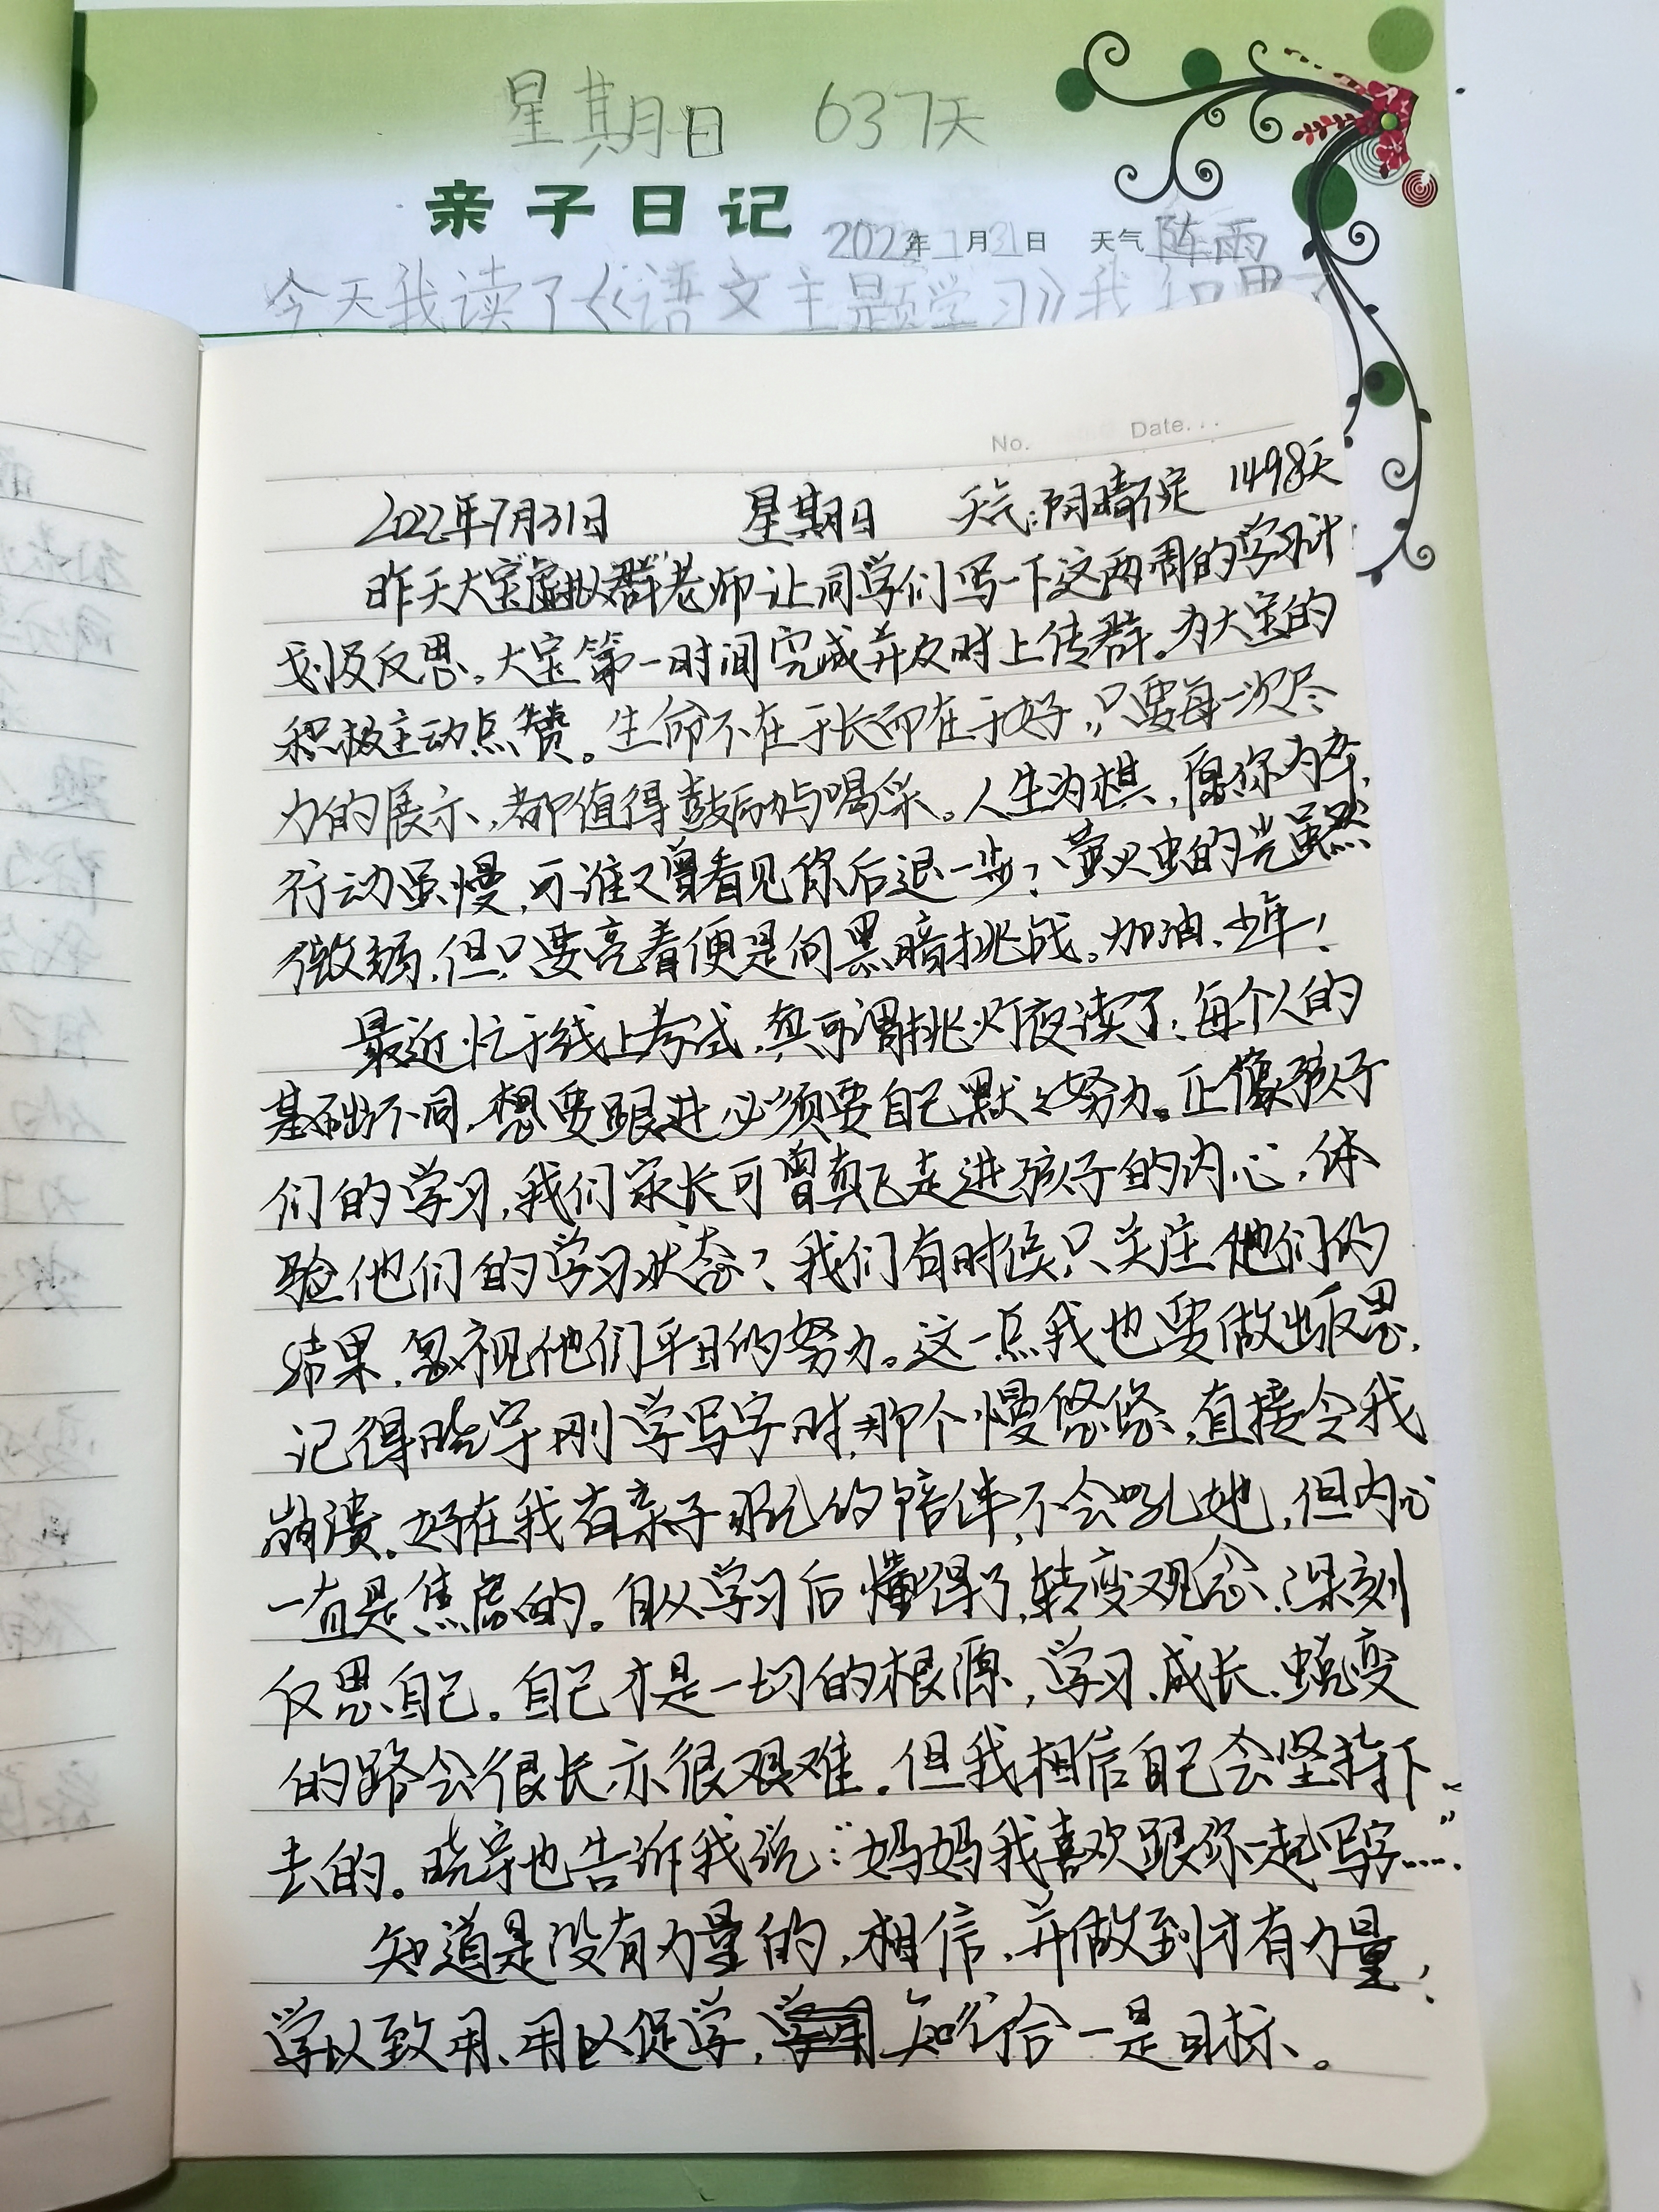 星期日 637天
亲子日记 2022年7月31日 天气 阵雨
今天我读了《语文主题学习》我知果了
No. Date.
2022年7月31日 星期日 天气:阴晴不定 1498天
昨天大宝“虚拟群”老师让同学们写一下这两周的学习计
划及反思。大宝第一时间完成并及时上传群。为大宝的
积极主动点赞。生命不在于长而在于好,只要每一次尽
力的展示,都值得鼓励与喝采。人生为棋,愿你为卒,
行动虽慢,可谁又曾看见你后退一步?萤火虫的光虽然
微弱,但只要亮着便是向黑暗挑战。加油、少年!
最近忙于线上考试,真可谓挑灯夜读了;每个人的
基础不同,想要跟进必须要自己默々努力。正像孩子
们的学习,我们家长可曾真正走进孩子的内心,体
验他们的学习状态?我们有时候只关注他们的
结果,忽视他们平日的努力。这一点我也要做出反思,
记得晓宇刚学写字时,那个慢悠悠,直接令我
崩溃。好在我有亲子日记的陪伴,不会吼她,但内心
一直是焦虑的。自从学习后懂得了,转变观念、深刻
反思自己。自己才是一切的根源,学习、成长、蜕变
的路会很长亦很艰难。但我相信自己会坚持下
去的。晓宇也告诉我说:“妈妈我喜欢跟你一起写字……”
知道是没有力量的,相信、并做到才有力量,
学以致用、用以促学,知行合一是目标、。